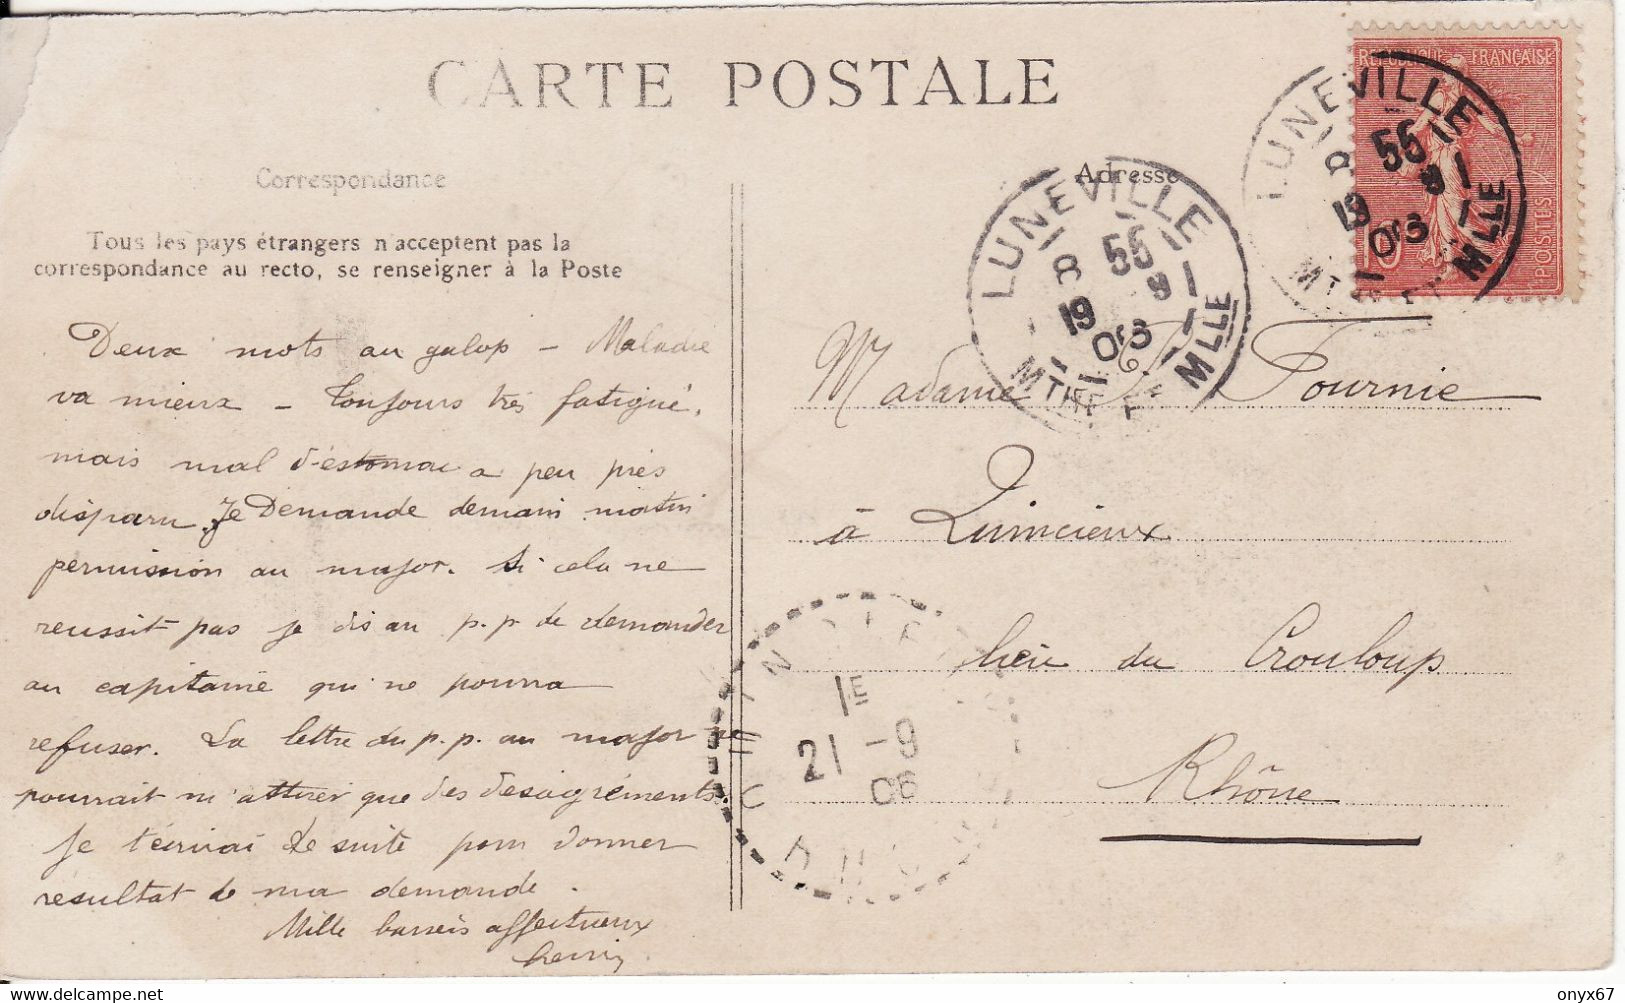 CARTE POSTALE
Correspondance
Tous les pays étrangers n'acceptent pas la
correspondance au recto, se renseigner à la Poste
Deux mots au galop – Maladie
va mieux – Toujours très fatigué,
mais mal d'estomac a peu près
disparu. Je Demande demain matin
permission au major. Si cela ne
reussit pas je dis au p.p. de demander
au capitaine qui ne pourra
refuser. La lettre du p.p. au major ne
pourrait m'attirer que des desagréments.
Je t'écrirai de suite pour donner
résultat de ma demande.
Mille baisers affectueux
henri
Adresse
Madame P. Fournie
à Quincieux
lieu du Crouloup
Rhône
REPUBLIQUE FRANÇAISE
10
POSTES
LUNEVILLE
8 55
19 9
06
MTHE ET MLLE
LUNEVILLE
8 55
19 9
06
MTHE ET MLLE
1E
21 -9
06
onyx67